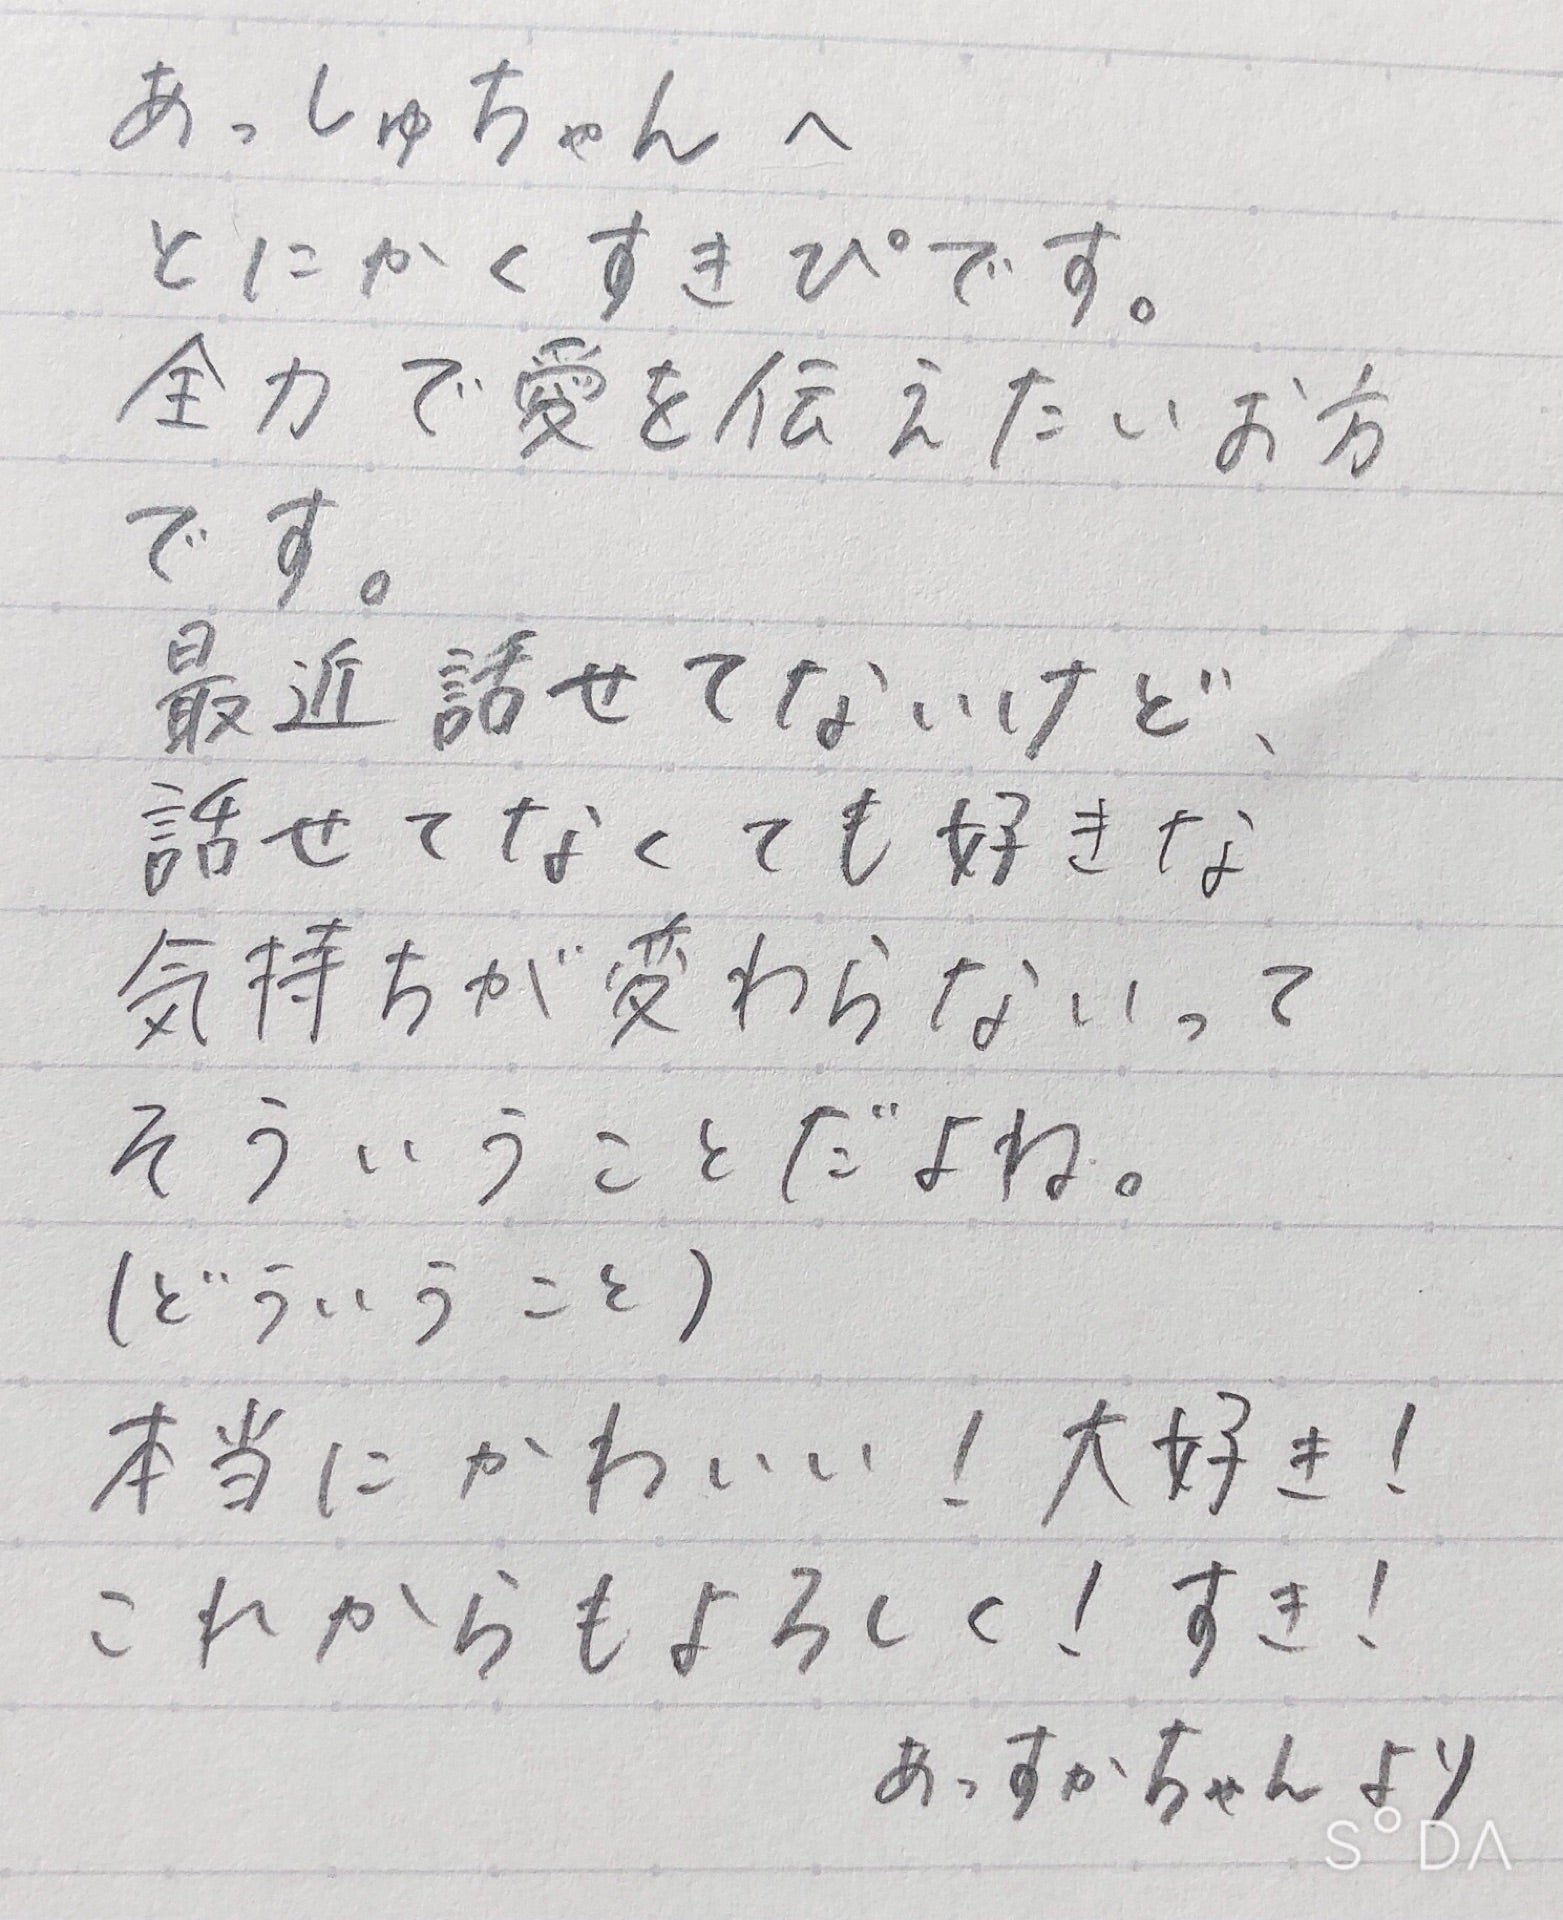 あっしゅちゃんへ
とにかくすきぴです。
全力で愛を伝えたいお方
です。
最近話せてないけど、
話せてなくても好きな
気持ちが変わらないって
そういうことだよね。
(どういうこと)
本当にかわいい!大好き!
これからもよろしく!すき!
あっすかちゃんより
SODA